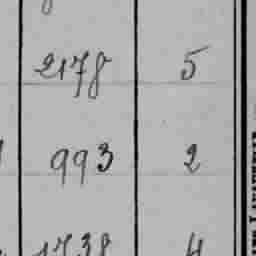 2178 5
993 2
1738 4